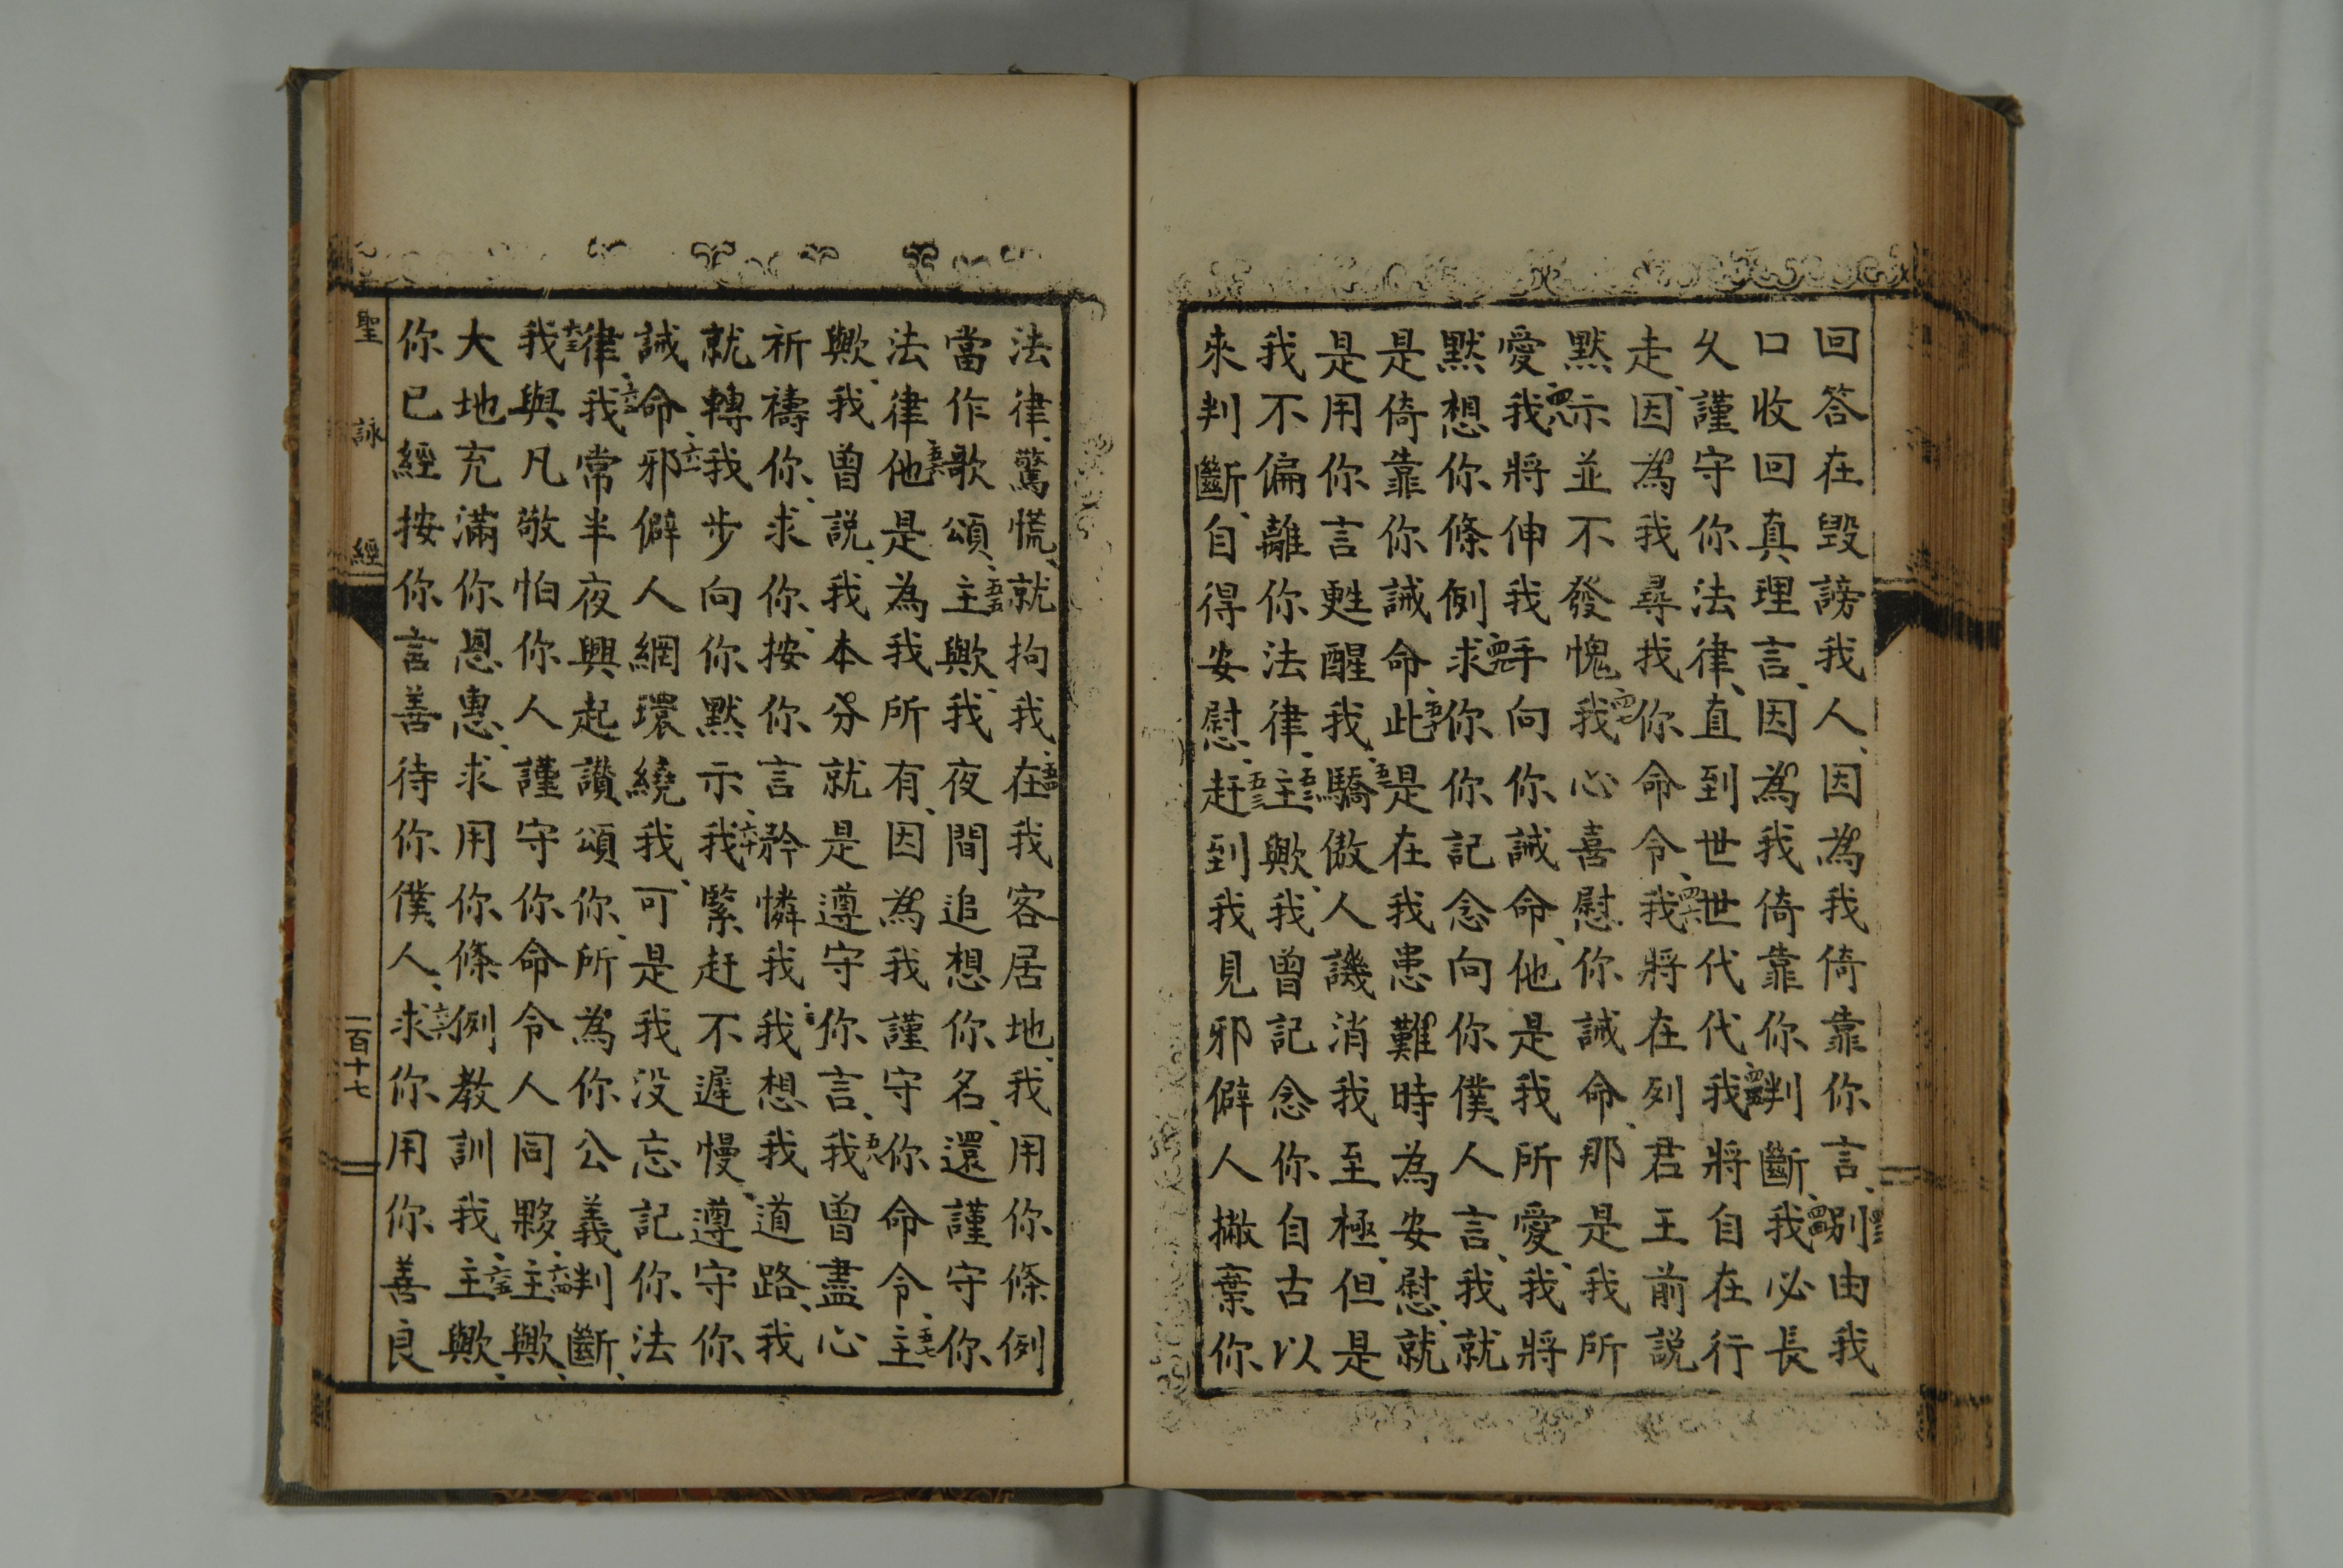 回答在毀謗我人、因為我倚靠你言、別由我
口收回真理言、因為我倚靠你判斷、我必長
久謹守你法律、直到世世代代、我將自在行
走、因為我尋我你命令、我將在列君王前説
默示並不發愧我心喜慰你誡命、那是我所
愛我將伸我手向你誡命、他是我所愛、我將
默想你條例求你你記念向你僕人言、我就
是倚靠你誡命此是在我患難時為安慰、就
是用你言甦醒我、驕傲人譏消我至極、但是
我不偏離你法律、主歟、我曾記念你自古以
來判斷、自得安慰、赶到我見邪僻人撇棄你
法律、驚慌、就拘我、在我客居地、我用你條例
當作歌頌、主歟、我夜間追想你名、還謹守你
法律他是為我所有、因為我謹守你命令、主
歟、我曾説、我本分就是遵守你言、我曾盡心
祈禱你、求你、按你言矜憐我、我想我道路、我
就轉我步向你默示我緊赶不遲慢、遵守你
誡命、邪僻人網環繞我、可是我没忘記你法
律、我常半夜興起讚頌你、所為你公義判斷、
我與凡敬怕你人謹守你命令人同夥、主歟、
大地充滿你恩惠、求用你條例教訓我、主歟、
你已經按你言善待你僕人、求你用你善良
聖詠經
一百十七